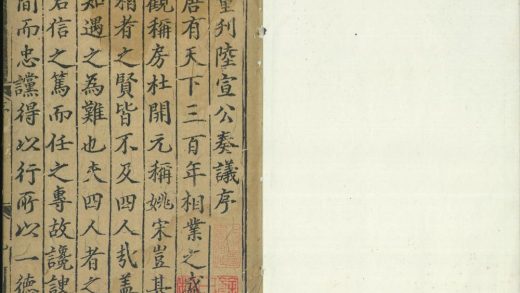 重刊陸宣公奏議序
唐有天下三百年相業之盛
觀稱房杜開元稱姚宋豈其
相者之賢皆不及四人哉蓋
知遇之為難也夫四人者之
君信之篤而任之專故讒諛
間而忠讜得以行所以一德